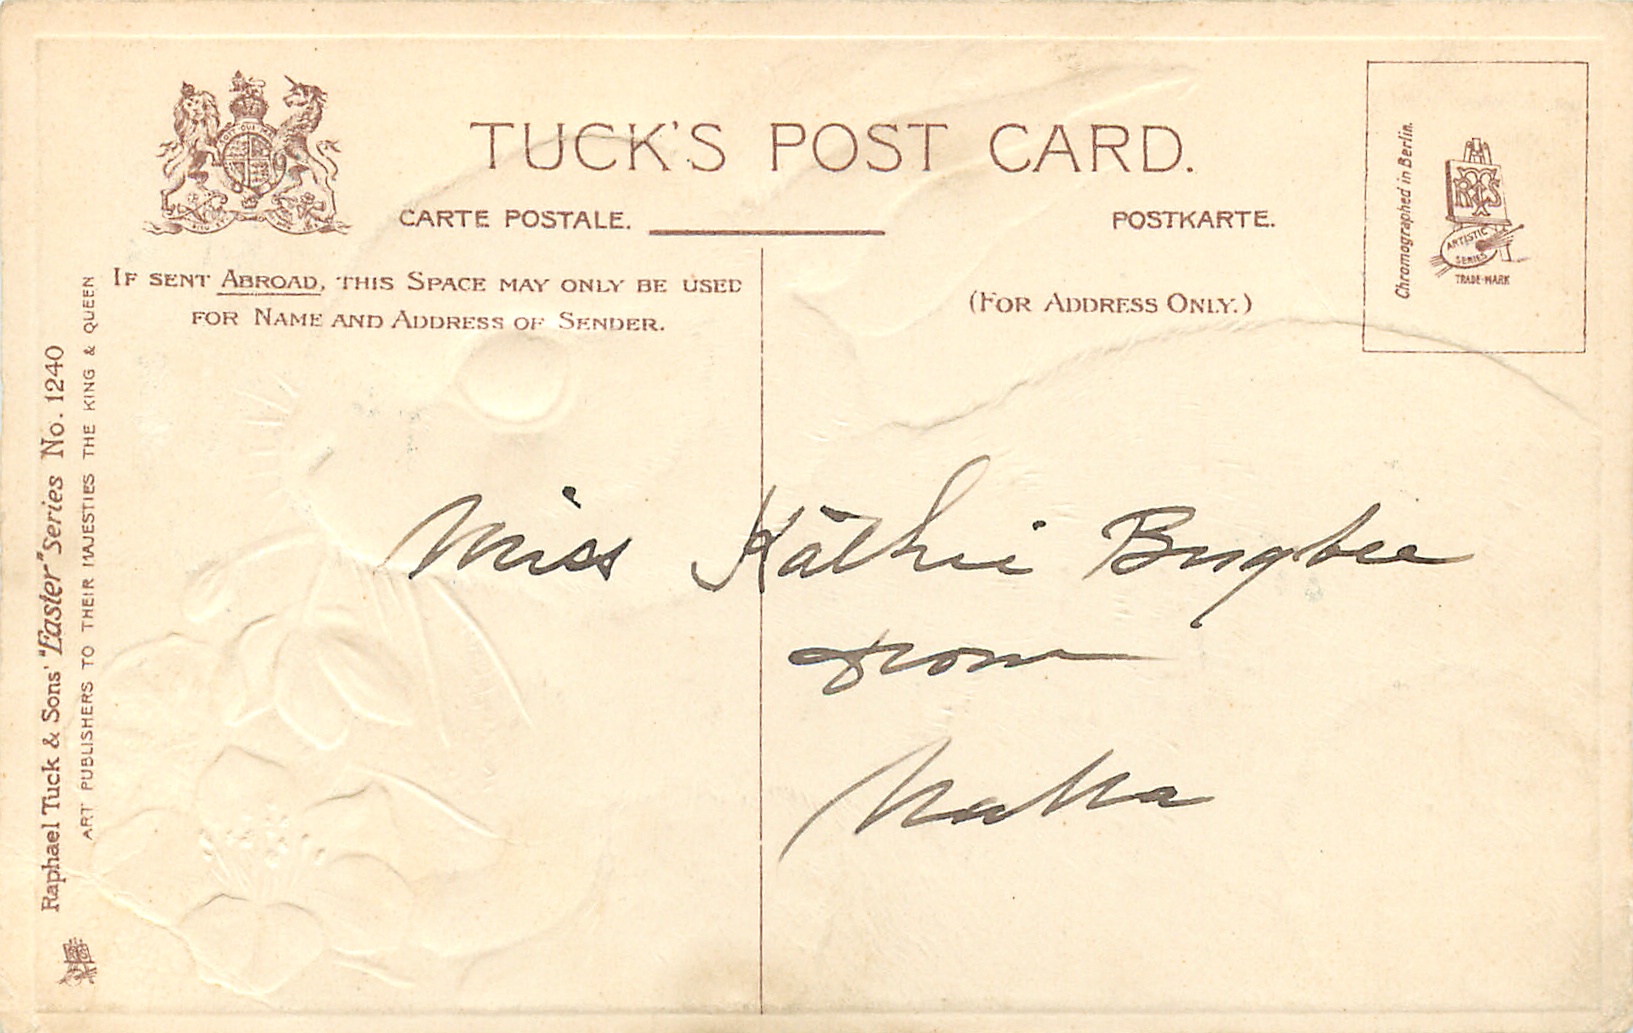 TUCK'S POST CARD.
CARTE POSTALE.
POSTKARTE.
IF SENT ABROAD, THIS SPACE MAY ONLY BE USED
FOR NAME AND ADDRESS OF SENDER.
(FOR ADDRESS ONLY.)
Chromographed in Berlin.
RTS
ARTISTIC
SERIES
TRADE-MARK
Raphael Tuck & Sons' "Easter" Series No. 1240
ART PUBLISHERS TO THEIR MAJESTIES THE KING & QUEEN
Miss Kathie Bugbee
from